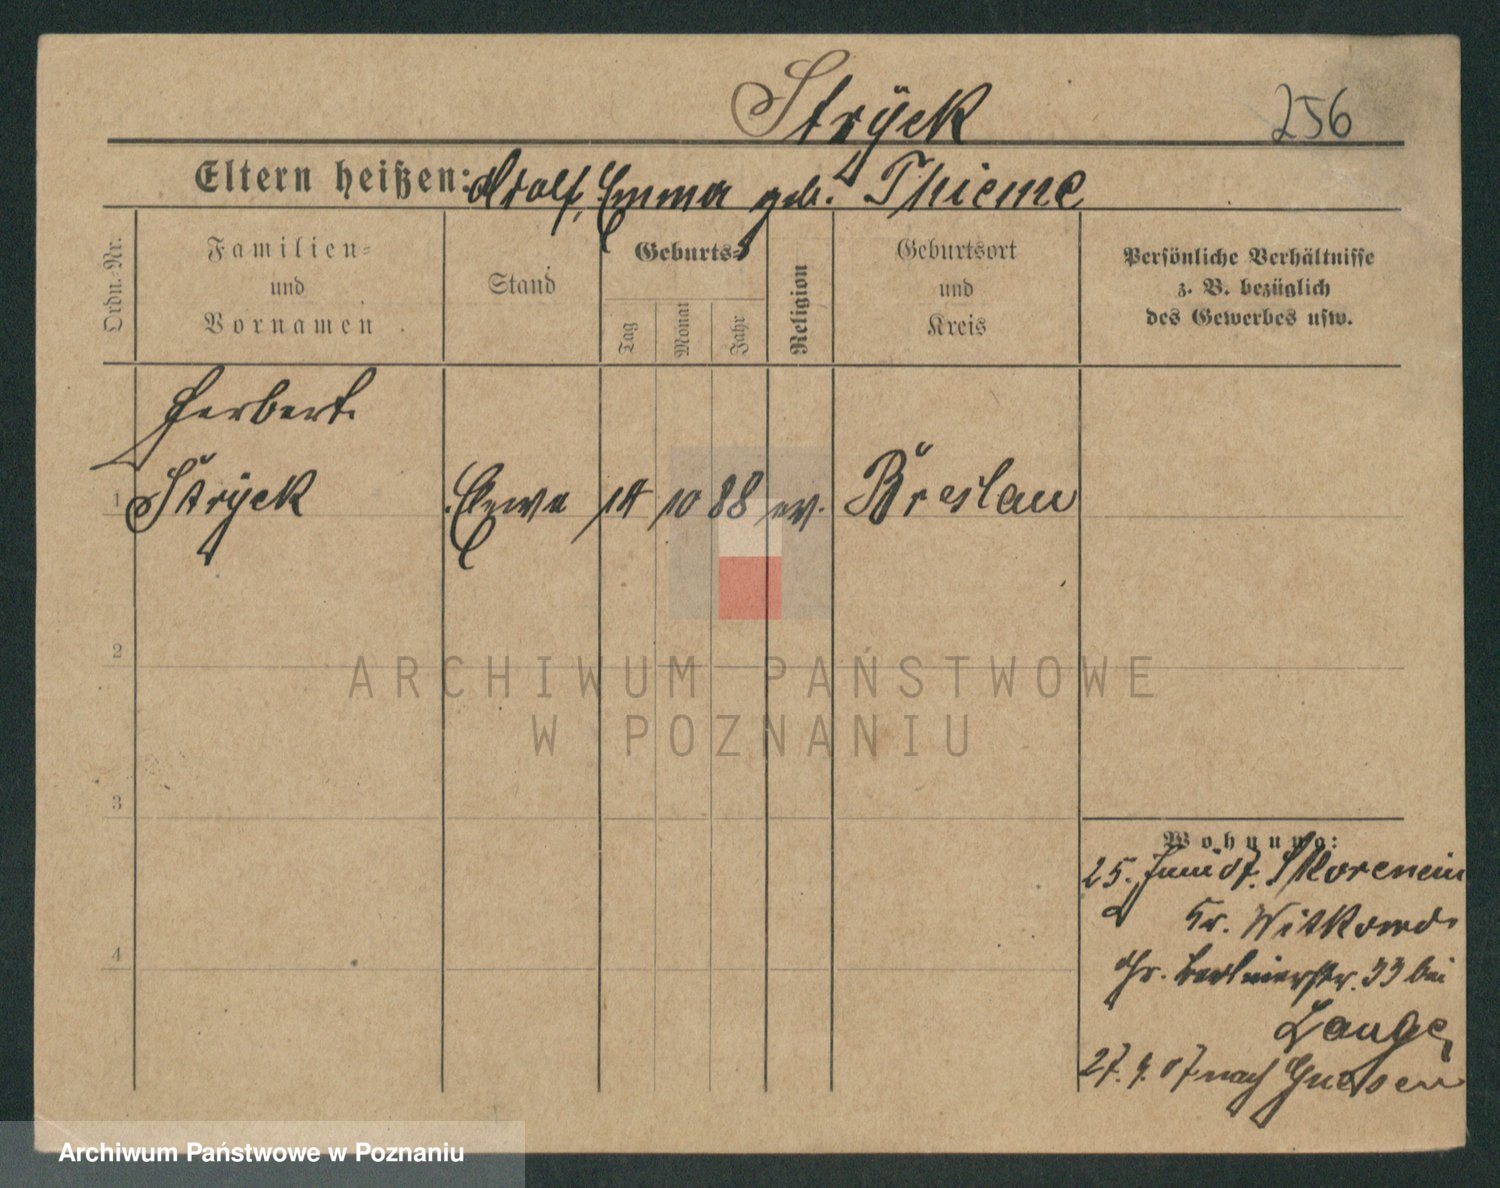 Strÿck 256
Eltern heißen: Adolf, Emma geb. Thieme
Ordn.-Nr.
Familien-
und
Vornamen
Stand
Geburts-
Tag
Monat
Jahr
Religion
Geburtsort
und
Kreis
Persönliche Verhältnisse
z. B. bezüglich
des Gewerbes usw.
Herbert
1 Strÿck 14 10 88 ev. Breslau
2
3
4
Wohnung:
25. Juni 07. Skorencin
Kr. Witkowo
Berlinerstr. 33 bei
Lange
27. 9. 07 nach Gnesen
ARCHIWUM PAŃSTWOWE
W POZNANIU
Archiwum Państwowe w Poznaniu